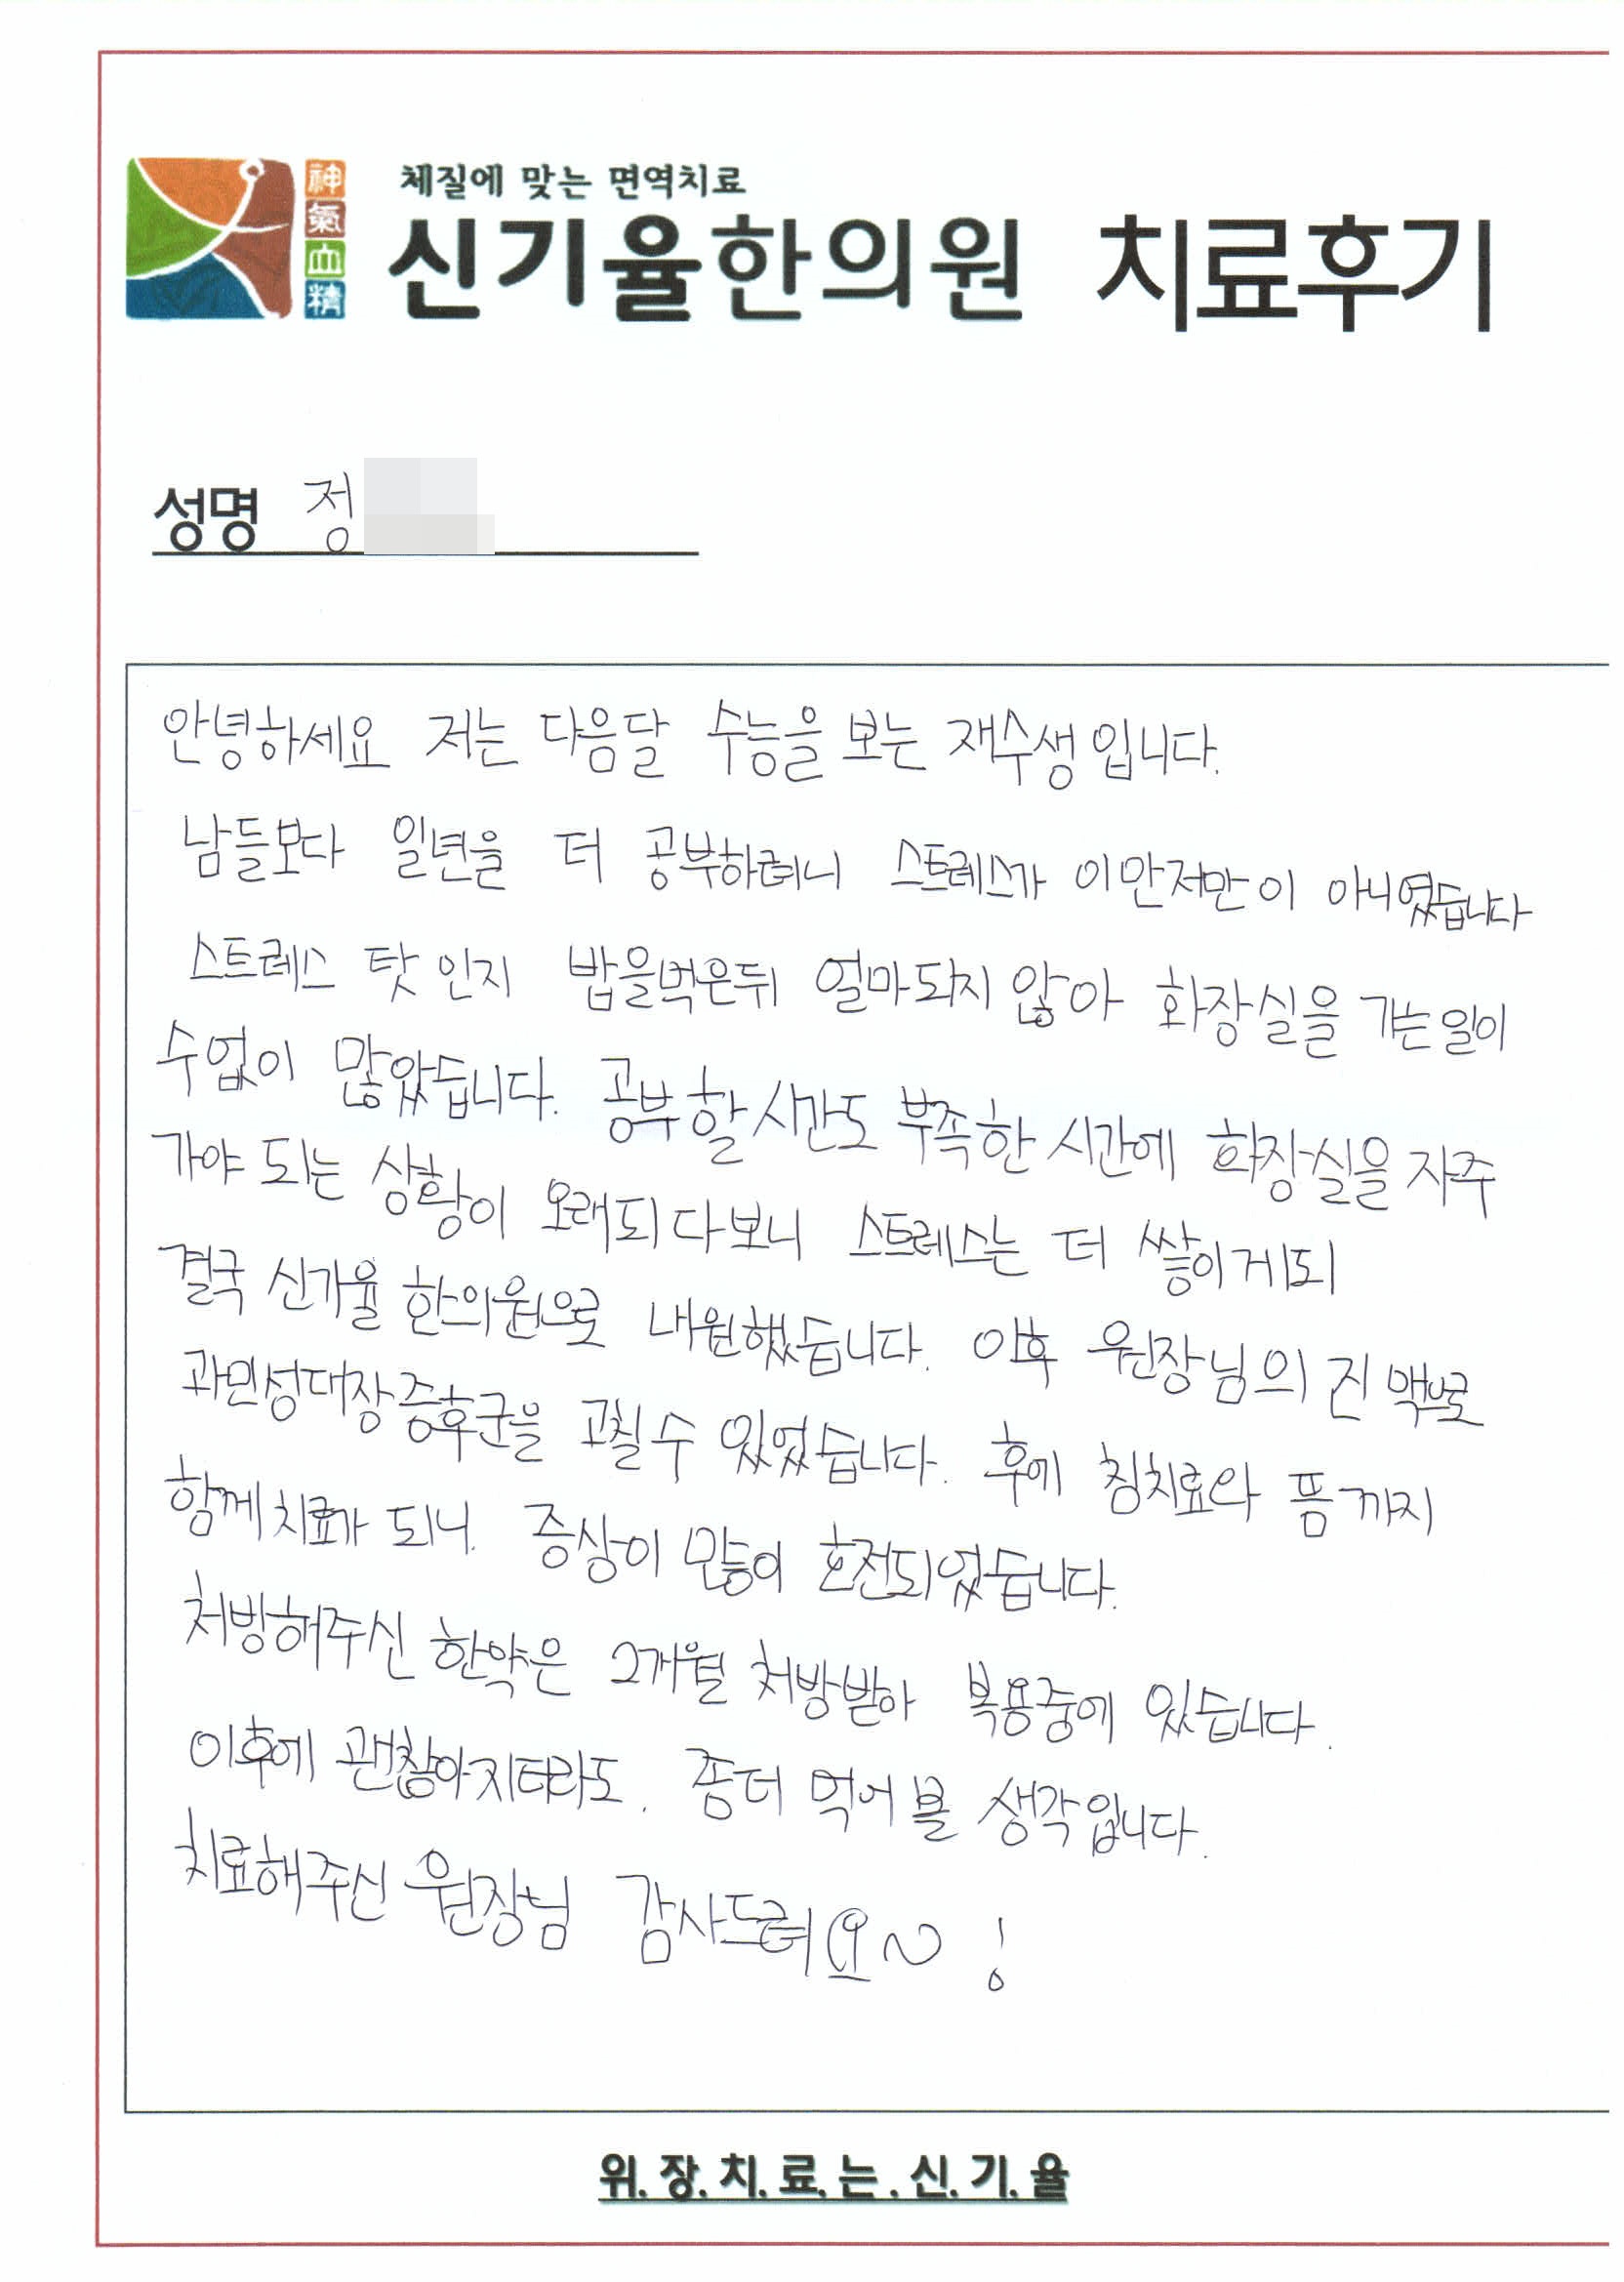 神
氣
血
精
체질에 맞는 면역치료
신기율한의원 치료후기
성명 정
안녕하세요 저는 다음달 수능을 보는 재수생입니다.
남들보다 일년을 더 공부하려니 스트레스가 이만저만이 아니였습니다
스트레스 탓인지 밥을먹은뒤 얼마되지 않아 화장실을 가는일이
수없이 많았습니다. 공부할시간도 부족한 시간에 화장실을 자주
가야 되는 상황이 오래되다보니 스트레스는 더 쌓이게되
결국 신기율 한의원으로 내원했습니다. 이후 원장님의 진맥으로
과민성대장증후군을 고칠수 있었습니다. 후에 침치료와 뜸까지
함께치료가 되니. 증상이 많이 호전되었습니다.
처방해주신 한약은 2개월 처방받아 복용중에 있습니다.
이후에 괜찮아지더라도. 좀더 먹어볼 생각입니다.
치료해주신 원장님 감사드려요~!
위.장.치.료.는.신.기.율